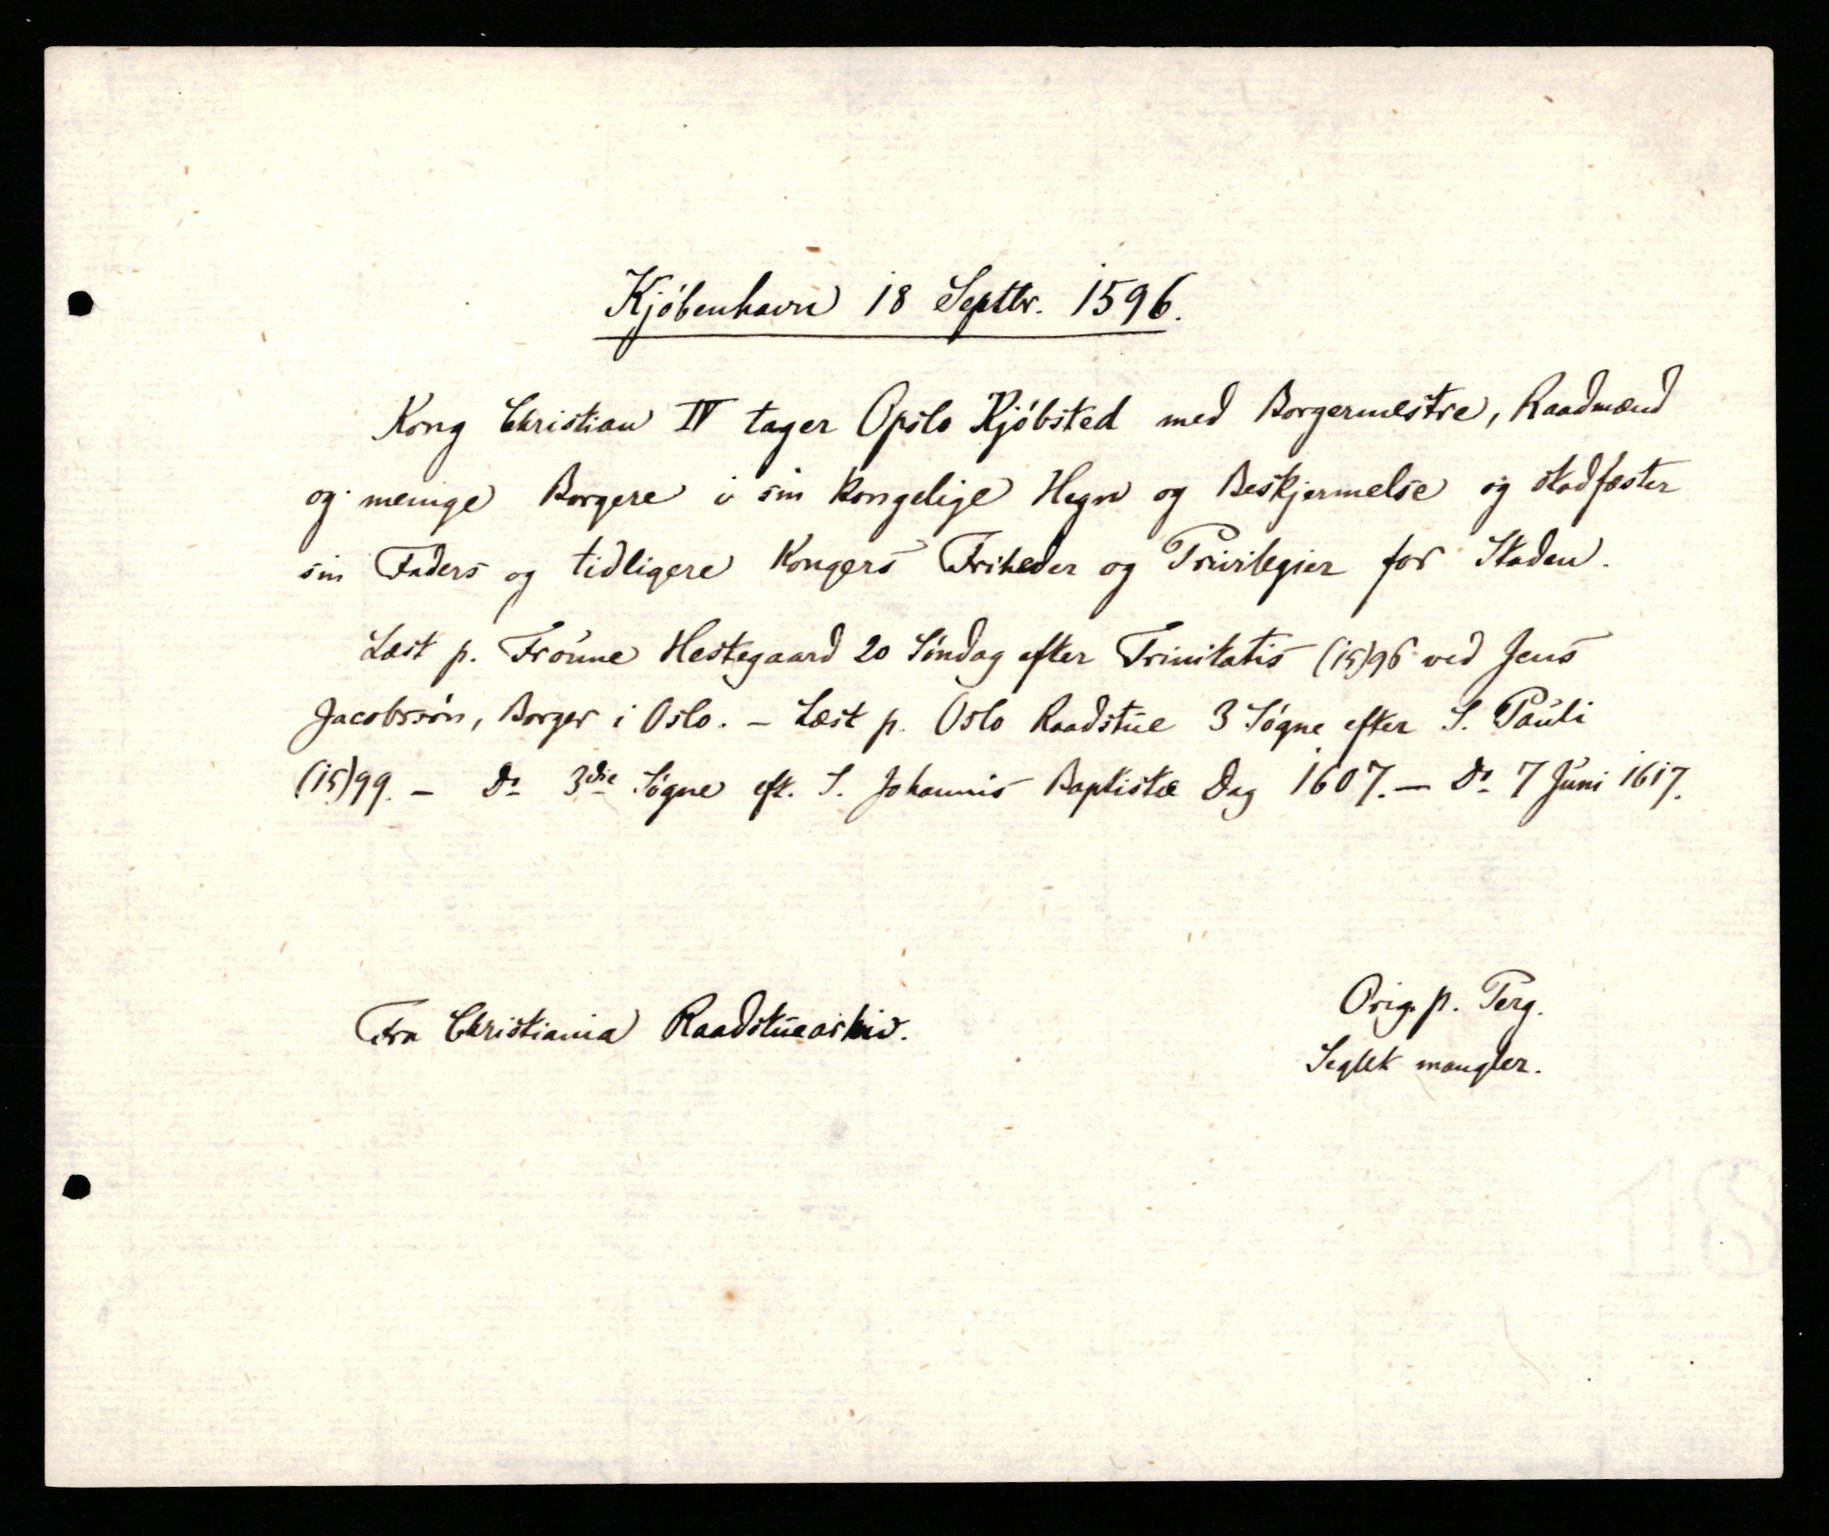 Kjöbenhavn 18 Septbr. 1596.
Kong Christian IV tager Opslo Kjöbsted med Borgermestre, Raadmænd
og menige Borgere i sin kongelige Hegn og Beskjermelse og stadfæster
sin Faders og tidligere Kongers Friheder og Privilegier for Staden.
Læst p. Hestegaard 20 Söndag efter Trinitatis (15)96 ved Jens
Jacobssön, Borger i Oslo. – Læst p. Oslo Raadstue 3 Sögne efter S. Pauli
(15)99. – Do 3die Sögne eft. S. Johannis Baptistæ Dag 1607. – Do 7 Juni 1617.
Fra Christiania Raadstuearkiv.
Orig. p. Perg.
Seglet mangler.